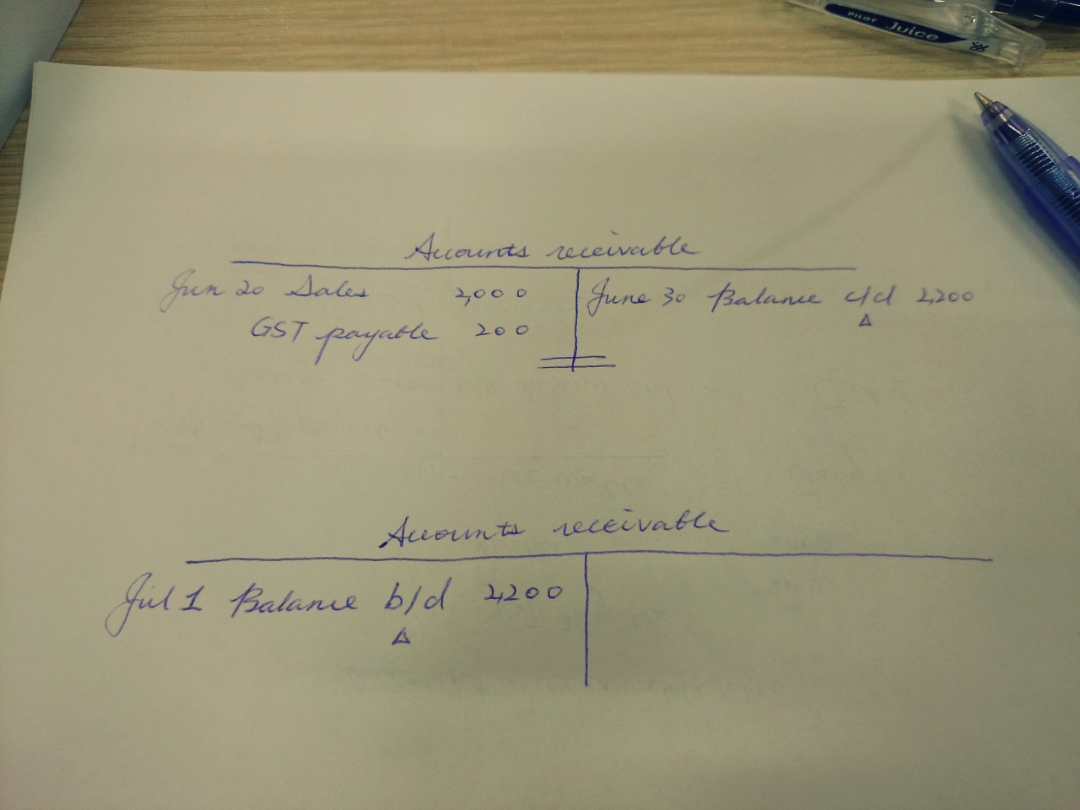 PILOT Juice
Accounts receivable
Jun 20 Sales 2,000 June 30 Balance c/d 2,200
GST payable 200
Accounts receivable
Jul 1 Balance b/d 2,200